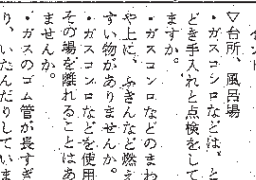 イント
▽台所、風呂場
・ガスコンロなどは、と
きどき手入れと点検をして
ますか。
・ガスコンロなどのまわ
や上に、ふきんなど燃え
すい物がありませんか。
・ガスコンロなどを使用
その場を離れることはあ
ませんか。
・ガスのゴム管が長すぎ
り、いたんだりしていま